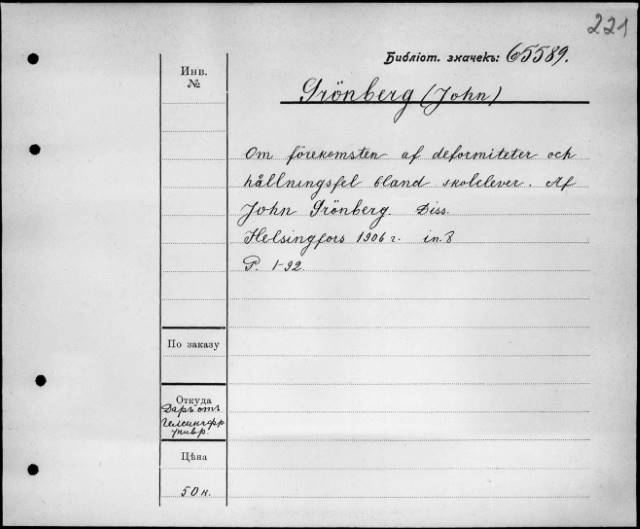 221
Библіот. значекъ: 65589.
Инв.
№
Grönberg (John)
Om förekomsten af deformiteter och
hållningsfel bland skolelever. Af
John Grönberg. Diss.
Helsingfors 1906 г. in. 8
P. 1-92.
По заказу
Откуда
Даръ отъ
Гельсингфр
унивр.
Цѣна
50 к.